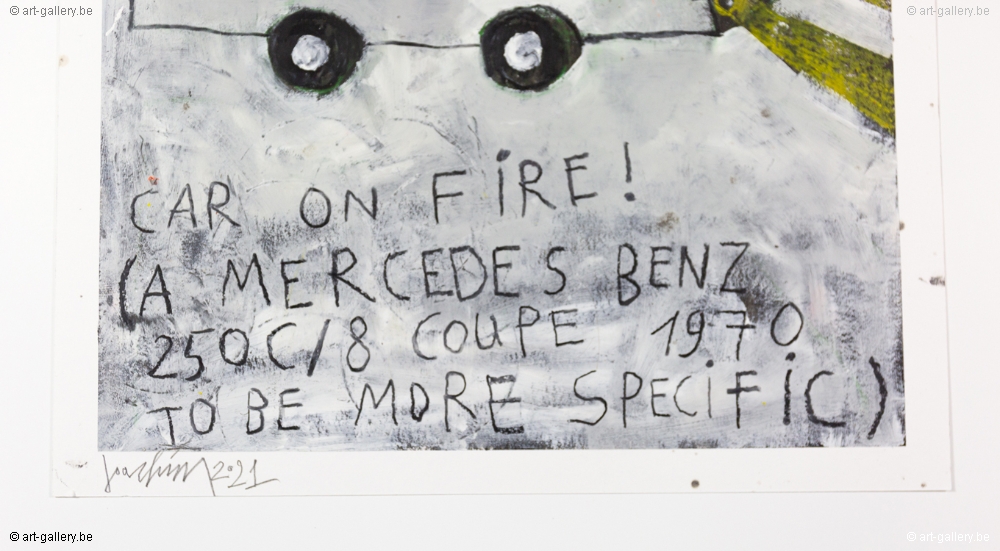 © art-gallery.be
© art-gallery.be
CAR ON FiRE!
(A MERCEDES BENZ
250C/8 COUPE 1970
TO BE MORE SPECiFiC)
Joachim 2021
© art-gallery.be
© art-gallery.be